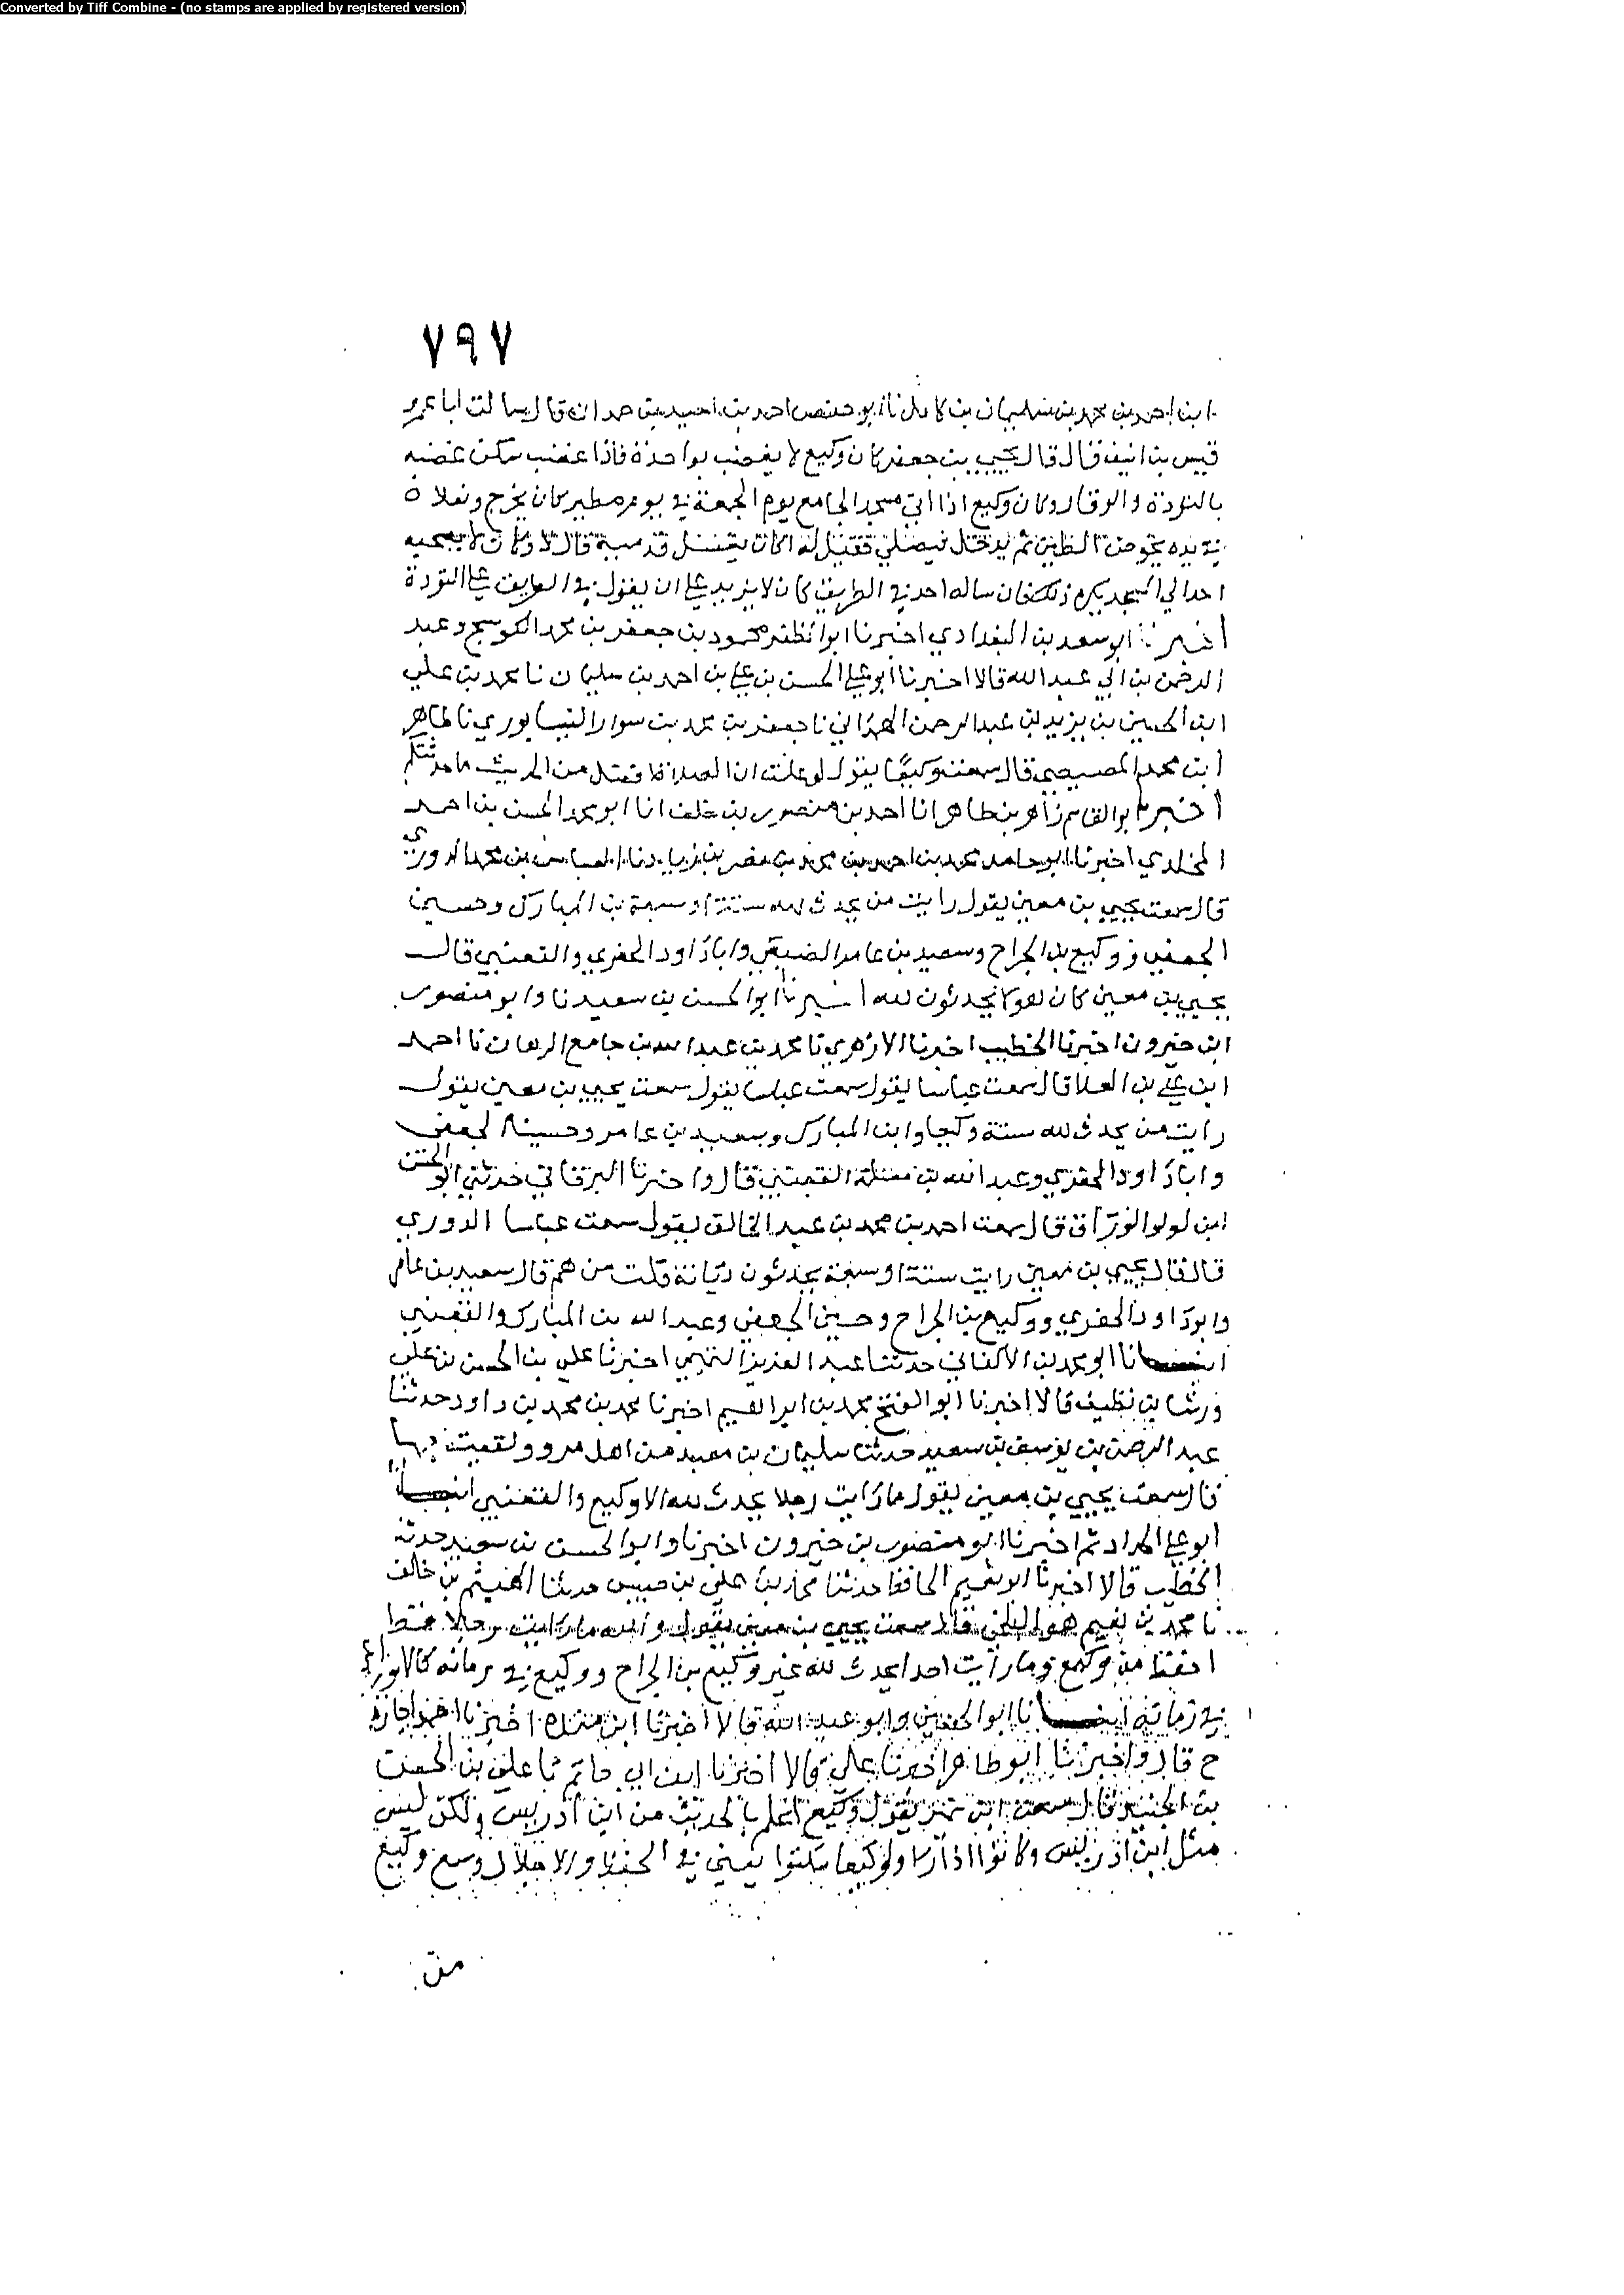 Converted by Tiff Combine - (no stamps are applied by registered version)
٧٩٧
ابن احمد بن محمد بن سليمان بن كامل نا ابو حفص احمد بن احيد بن حمدان قال سالت ابا عمرو
قيس بن انيف فقال قال يحيى بن جعفر كان وكيع لا يغضب بواحدة فاذا غضب سكن غضبه
بالتودة والوقار وكان وكيع اذا اتى مسجد الجامع يوم الجمعة في يوم مطير كان يخرج ونعلاه
في يده يخوض الطين ثم يدخل فيصلي فقيل له اكان يغسل قدميه قال لا وكان لا يصحبه
احد الى المسجد يكره ذلك فان ساله احد في الطريق كان لا يزيد على ان يقول في الطريق على التودة
اخبرنا ابو سعد بن البغدادي اخبرنا ابو المظفر محمود بن جعفر بن محمد الكوسج وعبد
الرحمن بن ابي عبد الله قالا اخبرنا ابو علي الحسن بن علي بن احمد بن سليمان نا محمد بن علي
ابن الحسين بن يزيد بن عبد الرحمن الهمداني نا جعفر بن محمد بن سوار النيسابوري نا طاهر
ابن محمد المصيصي قال سمعت وكيعا يقول لو علمت ان الصلاة افضل من الحديث ما حدثتكم
اخبرنا ابو القاسم زاهر بن طاهر انا احمد بن منصور بن خلف انا ابو محمد الحسن بن احمد
المخلدي اخبرنا ابو حامد محمد بن احمد بن محمد بن نصر بن زياد نا العباس بن محمد الدوري
قال سمعت يحيى بن معين يقول رايت من يحدث لله ستة او سبعة بن المبارك وحسين
الجعفي ووكيع بن الجراح وسعيد بن عامر الضبعي وابا داود الحفري والقعنبي قال
يحيى بن معين كان هولا يحدثون لله اخبرنا ابو الحسن بن سعيد نا وابو منصور
ابن خيرون اخبرنا الخطيب اخبرنا الازهري نا محمد بن عبد الله بن جامع الدهان نا احمد
ابن علي بن العلا قال سمعت عباسا يقول سمعت عباسا يقول سمعت يحيى بن معين يقول
رايت من يحدث لله ستة وكيعا وابن المبارك وسعيد بن عامر وحسينا الجعفي
وابا داود الحفري وعبد الله بن مسلمة القعنبي قال واخبرنا البرقاني حدثني ابو الحسن
ابن لولو الوراق قال سمعت احمد بن محمد بن عبد الخالق يقول سمعت عباسا الدوري
قال قال يحيى بن معين رايت ستة او سبعة يحدثون ديانة قلت من هم قال سعيد بن عامر
وابو داود الحفري ووكيع بن الجراح وحسين الجعفي وعبد الله بن المبارك والقعنبي
انا ابو محمد بن الاكفاني حدثنا عبد العزيز التميمي اخبرنا علي بن الحسن بن علي
ورشا بن نظيف قالا اخبرنا ابو الفتح محمد بن ابراهيم اخبرنا محمد بن محمد بن داود حدثنا
عبد الرحمن بن يوسف بن سعيد حدثنا سليمان بن معبد من اهل مرو ولقيته بها
قال سمعت يحيى بن معين يقول ما رايت رجلا يحدث لله الا وكيع والقعنبي انبانا
ابو علي الحداد ثم اخبرنا ابو منصور بن خيرون اخبرنا وابو الحسن بن سعيد حدثنا
الخطيب قالا اخبرنا ابو نعيم الحافظ حدثنا مخلد بن علي بن حبيش حدثنا الهيثم بن خالف
نا محمد بن نعيم هو البلخي قال سمعت يحيى بن معين يقول والله ما رايت رجلا قط
احفظ من وكيع وما رايت احدا يحدث لله غير وكيع بن الجراح ووكيع في زمانه كالاوزاعي
في زمانه انا ابو الحسين وابو عبد الله قالا اخبرنا ابن منده اخبرنا احمد اجازة
ح قال واخبرنا ابو طاهر اخبرنا علي قالا اخبرنا ابن ابي حاتم نا علي بن الحسن
بن الجنيد قال سمعت ابن نمير يقول وكيع اعلم بالحديث من ابن ادريس ولكن ليس
مثل ابن ادريس وكانوا اذا راوا وكيعا سكتوا يعني في الحفظ والاجلال وسمع وكيع
من